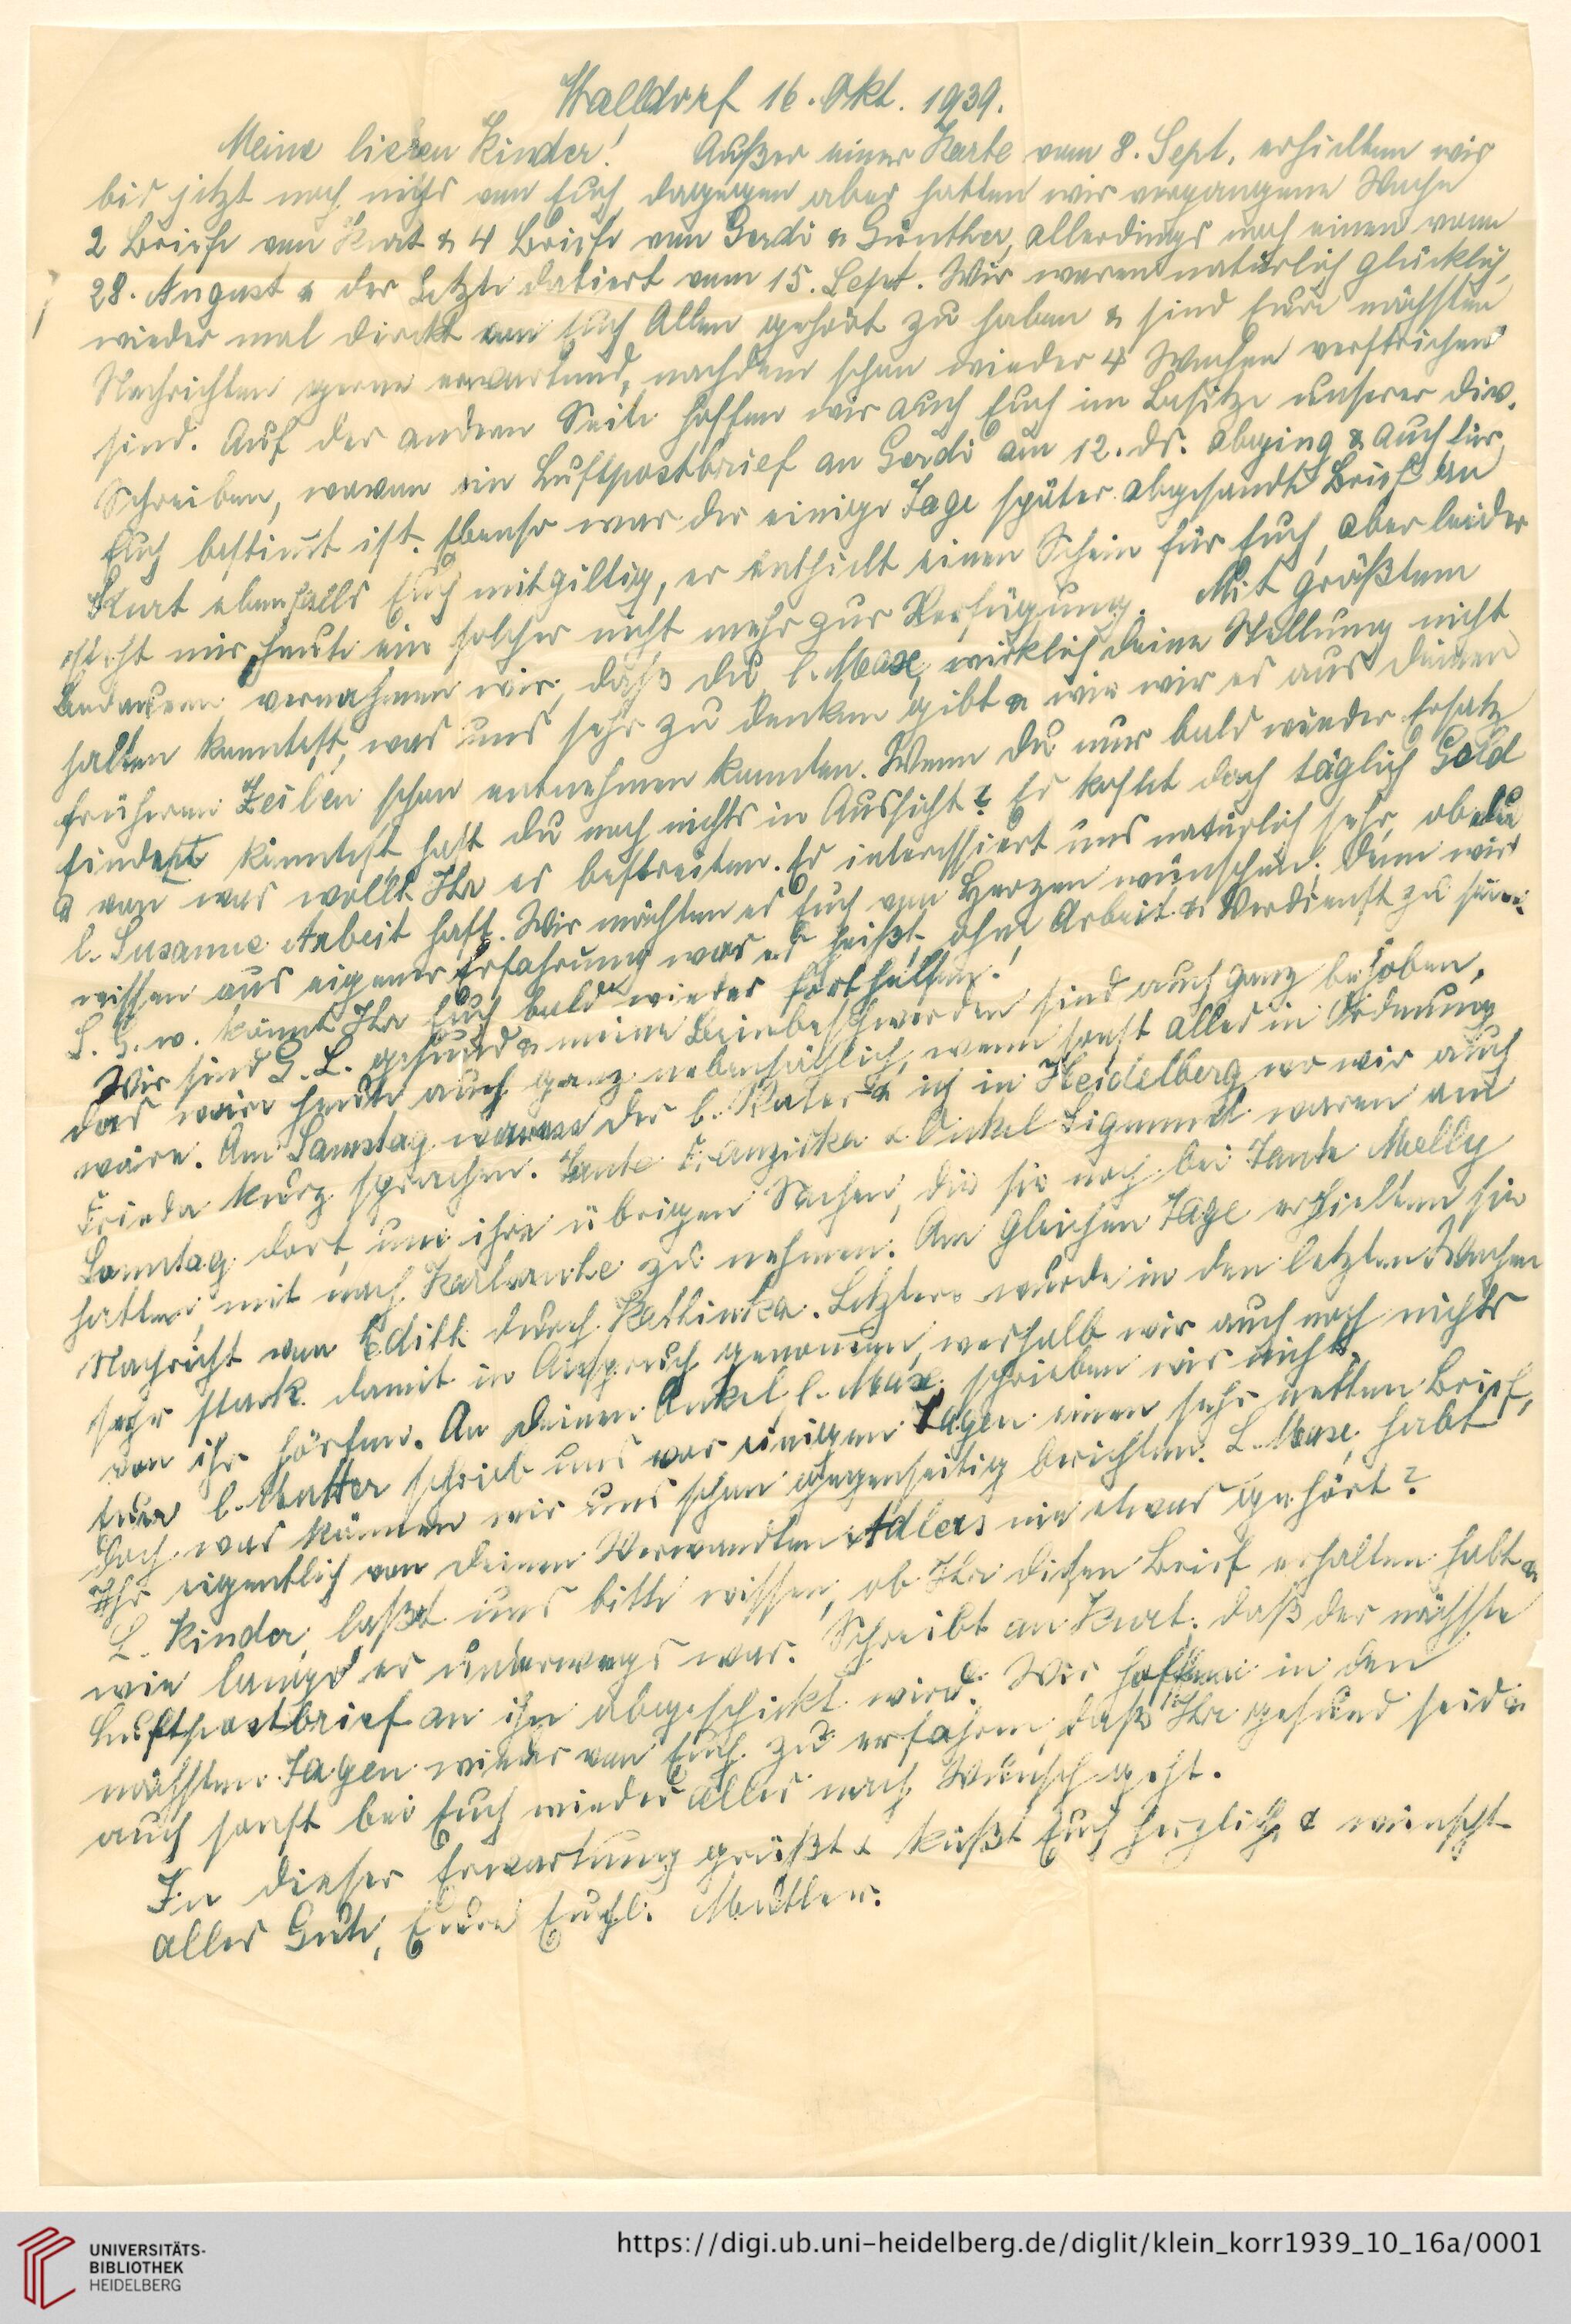 Walldorf 16. Okt. 1939.
Meine lieben Kinder! Außer einer Karte vom 8. Sept. erhielten wir
bis jetzt noch nichts von Euch, dagegen aber hatten wir vergangene Woche
2 Briefe von Kurt & 4 Briefe von Gerdi & Günther, allerdings noch einen vom
28. August & der Letzte datiert vom 15. Sept. Wir waren natürlich glücklich,
wieder mal direkt von Euch Allen gehört zu haben & sind Eure nächsten
Nachrichten gerne erwartend, nachdem schon wieder 4 Wochen verstrichen
sind. Auf der andern Seite hoffen wir auch Euch im Besitze unserer div.
Schreiben, wovon ein Luftpostbrief an Gerdi am 12. ds. abging & auch für
Euch bestimmt ist. Ebenso war der einige Tage später abgesandte Brief an
Kurt ebenfalls Euch mitgiltig, er enthielt einen Schein für Euch, aber leider
steht mir heute ein solcher nicht mehr zur Verfügung. Mit größtem
Bedauern vernahmen wir, daß du, l. Max, wirklich deine Stellung nicht
halten konntest, was uns sehr zu denken gibt & wie wir es aus deinen
früheren Zeilen schon entnehmen konnten. Wenn du nur bald wieder Ersatz
finden könntest, hast du noch nichts in Aussicht? Es kostet doch täglich Geld
& von was wollt Ihr es bestreiten. Es interessiert uns natürlich sehr, ob du
l. Susanne Arbeit hast. Wir möchten es Euch von Herzen wünschen, denn wir
wissen aus eigener Erfahrung was es heißt, ohne Arbeit & Verdienst zu sein.
S. G. w. könnt Ihr Euch bald wieder forthelfen!
Wir sind G. L. gesund & meine Beinbeschwerden sind auch ganz behoben,
das wäre heute auch ganz nebensächlich, wenn sonst alles in Ordnung
wäre. Am Samstag waren der l. Vater & ich in Heidelberg, wo wir auch
Frieda kurz sprachen. Tante Franziska & Onkel Sigmund waren am
Sonntag dort, um ihre übrigen Sachen, die sie noch bei Tante Melly
hatten, mit nach Karlsruhe zu nehmen. Am gleichen Tage erhielten sie
Nachricht von Edith durch Bettinka. Letztere wurde in den letzten Wochen
sehr stark damit in Anspruch genommen, weshalb wir auch noch nichts
von ihr hörten. An deinen Onkel, l. Max, schrieben wir nicht.
Eure l. Mutter schrieb uns vor einigen Tagen einen sehr netten Brief,
doch was können wir uns schon gegenseitig berichten. L. Max, habt
Ihr eigentlich von deinen Verwandten Adlers nie etwas gehört?
L. Kinder, laßt uns bitte wissen, ob Ihr diesen Brief erhalten habt &
wie lange er unterwegs war. Schreibt an Kurt, daß der nächste
Luftpostbrief an ihn abgeschickt wird. Wir hoffen in den
nächsten Tagen wieder von Euch zu erfahren, daß Ihr gesund seid &
auch sonst bei Euch wieder alles nach Wunsch geht.
In dieser Erwartung grüßt & küßt Euch herzlich & wünscht
alles Gute, Eure Euchl. Mutter.
UNIVERSITÄTS-
BIBLIOTHEK
HEIDELBERG
https://digi.ub.uni-heidelberg.de/diglit/klein_korr1939_10_16a/0001